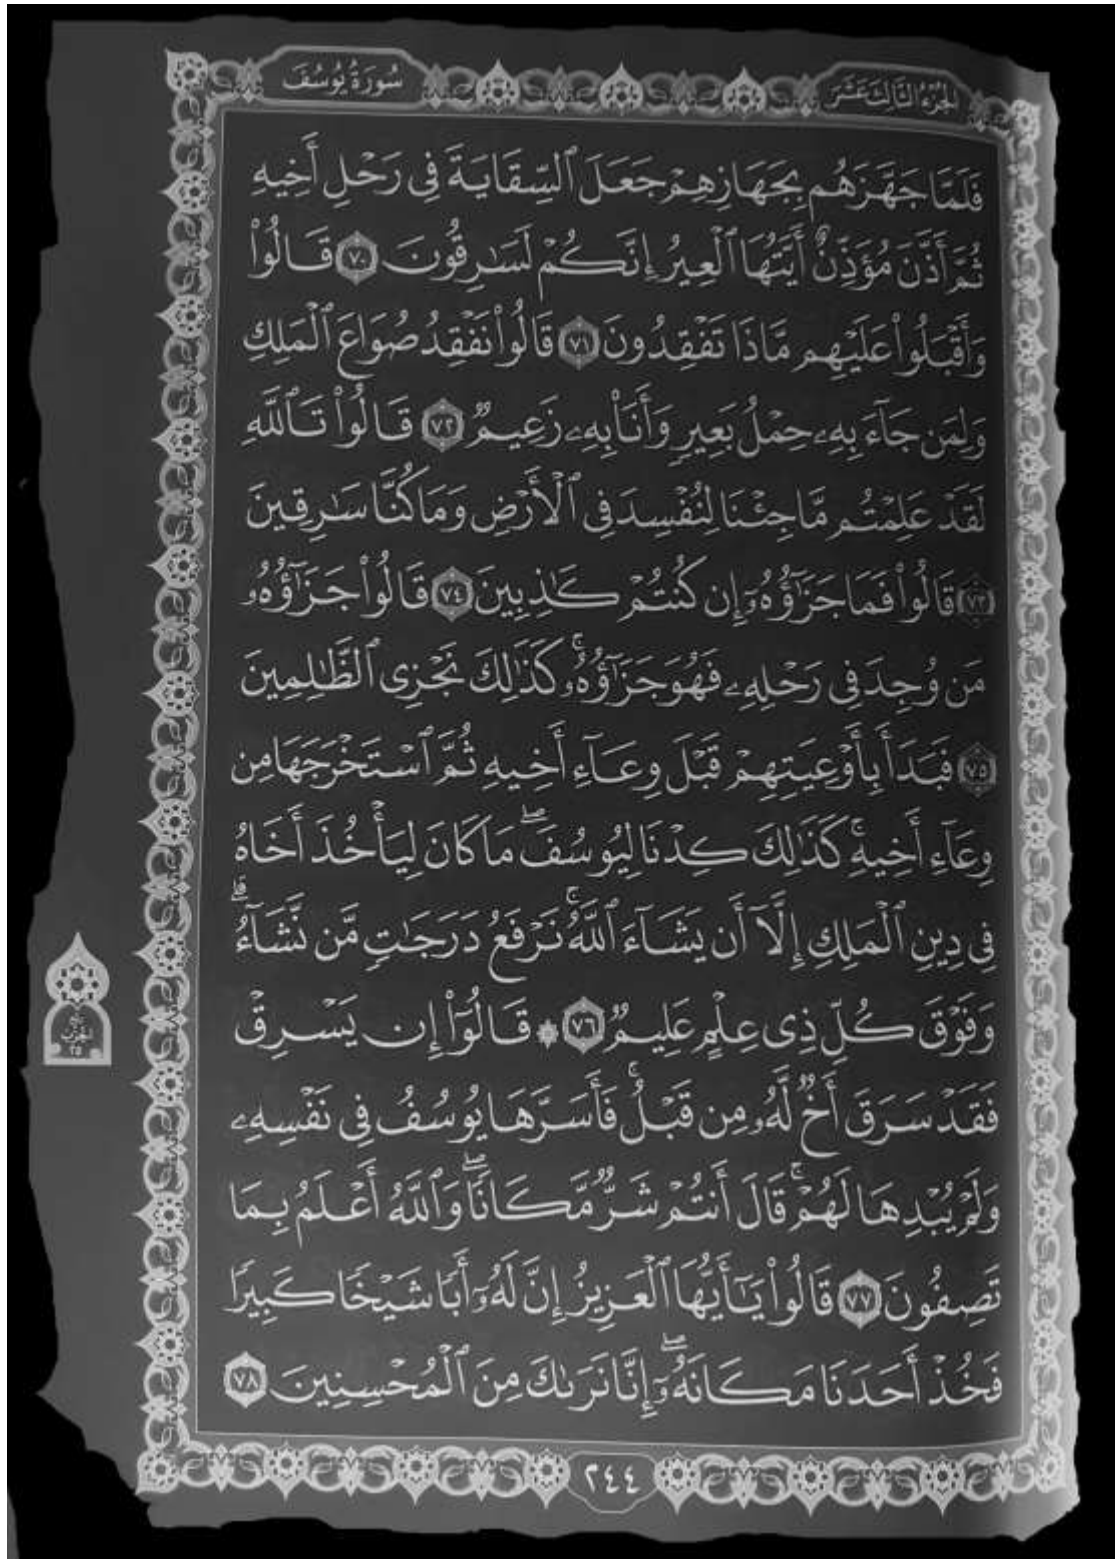 الجزء الثالث عشر
سورة يوسف
فَلَمَّا جَهَّزَهُم بِجَهَازِهِمْ جَعَلَ ٱلسِّقَايَةَ فِى رَحْلِ أَخِيهِ
ثُمَّ أَذَّنَ مُؤَذِّنٌ أَيَّتُهَا ٱلْعِيرُ إِنَّكُمْ لَسَٰرِقُونَ ٧٠ قَالُوا۟
وَأَقْبَلُوا۟ عَلَيْهِم مَّاذَا تَفْقِدُونَ ٧١ قَالُوا۟ نَفْقِدُ صُوَاعَ ٱلْمَلِكِ
وَلِمَن جَآءَ بِهِۦ حِمْلُ بَعِيرٍ وَأَنَا۠ بِهِۦ زَعِيمٌ ٧٢ قَالُوا۟ تَٱللَّهِ
لَقَدْ عَلِمْتُم مَّا جِئْنَا لِنُفْسِدَ فِى ٱلْأَرْضِ وَمَا كُنَّا سَٰرِقِينَ
٧٣ قَالُوا۟ فَمَا جَزَٰٓؤُهُۥٓ إِن كُنتُمْ كَٰذِبِينَ ٧٤ قَالُوا۟ جَزَٰٓؤُهُۥ
مَن وُجِدَ فِى رَحْلِهِۦ فَهُوَ جَزَٰٓؤُهُۥۚ كَذَٰلِكَ نَجْزِى ٱلظَّٰلِمِينَ
٧٥ فَبَدَأَ بِأَوْعِيَتِهِمْ قَبْلَ وِعَآءِ أَخِيهِ ثُمَّ ٱسْتَخْرَجَهَا مِن
وِعَآءِ أَخِيهِۚ كَذَٰلِكَ كِدْنَا لِيُوسُفَۖ مَا كَانَ لِيَأْخُذَ أَخَاهُ
فِى دِينِ ٱلْمَلِكِ إِلَّآ أَن يَشَآءَ ٱللَّهُۚ نَرْفَعُ دَرَجَٰتٍ مَّن نَّشَآءُۗ
وَفَوْقَ كُلِّ ذِى عِلْمٍ عَلِيمٌ ٧٦ ۞ قَالُوٓا۟ إِن يَسْرِقْ
فَقَدْ سَرَقَ أَخٌ لَّهُۥ مِن قَبْلُۚ فَأَسَرَّهَا يُوسُفُ فِى نَفْسِهِۦ
وَلَمْ يُبْدِهَا لَهُمْۚ قَالَ أَنتُمْ شَرٌّ مَّكَانًاۖ وَٱللَّهُ أَعْلَمُ بِمَا
تَصِفُونَ ٧٧ قَالُوا۟ يَٰٓأَيُّهَا ٱلْعَزِيزُ إِنَّ لَهُۥٓ أَبًا شَيْخًا كَبِيرًا
فَخُذْ أَحَدَنَا مَكَانَهُۥٓۖ إِنَّا نَرَىٰكَ مِنَ ٱلْمُحْسِنِينَ ٧٨
٢٤٤